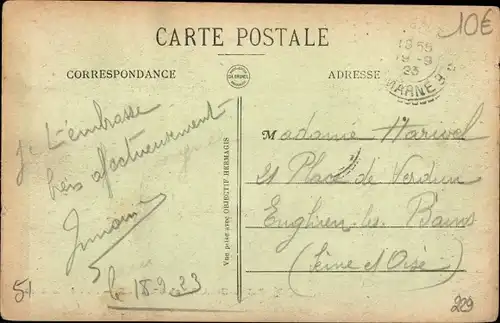 10€
CARTE POSTALE
CORRESPONDANCE
ADRESSE
19-9
23
MARNE
Je t'embrasse
très afectueusement
le 18-9-23
Vue prise avec OBJECTIF HERMAGIS
Madame
21 Place de Verdun
Enghien les Bains
(Seine et Oise)
51
229